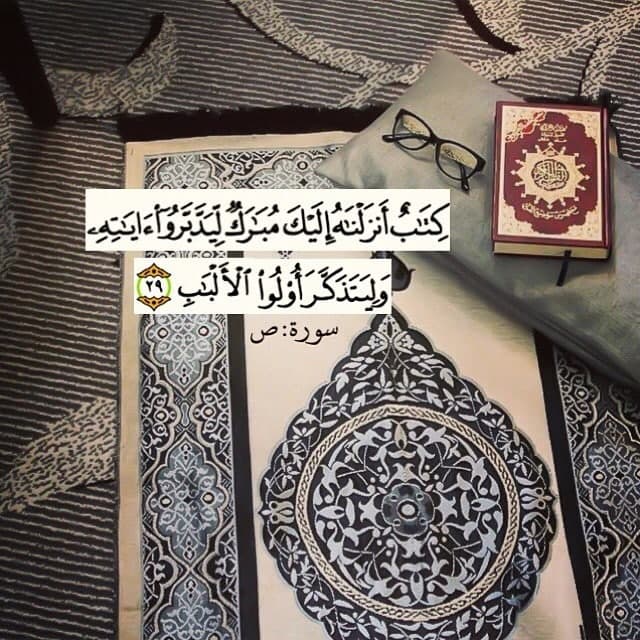 كِتَٰبٌ أَنزَلْنَٰهُ إِلَيْكَ مُبَٰرَكٌ لِّيَدَّبَّرُوٓا۟ ءَايَٰتِهِۦ
وَلِيَتَذَكَّرَ أُو۟لُوا۟ ٱلْأَلْبَٰبِ ٢٩
سورة: ص